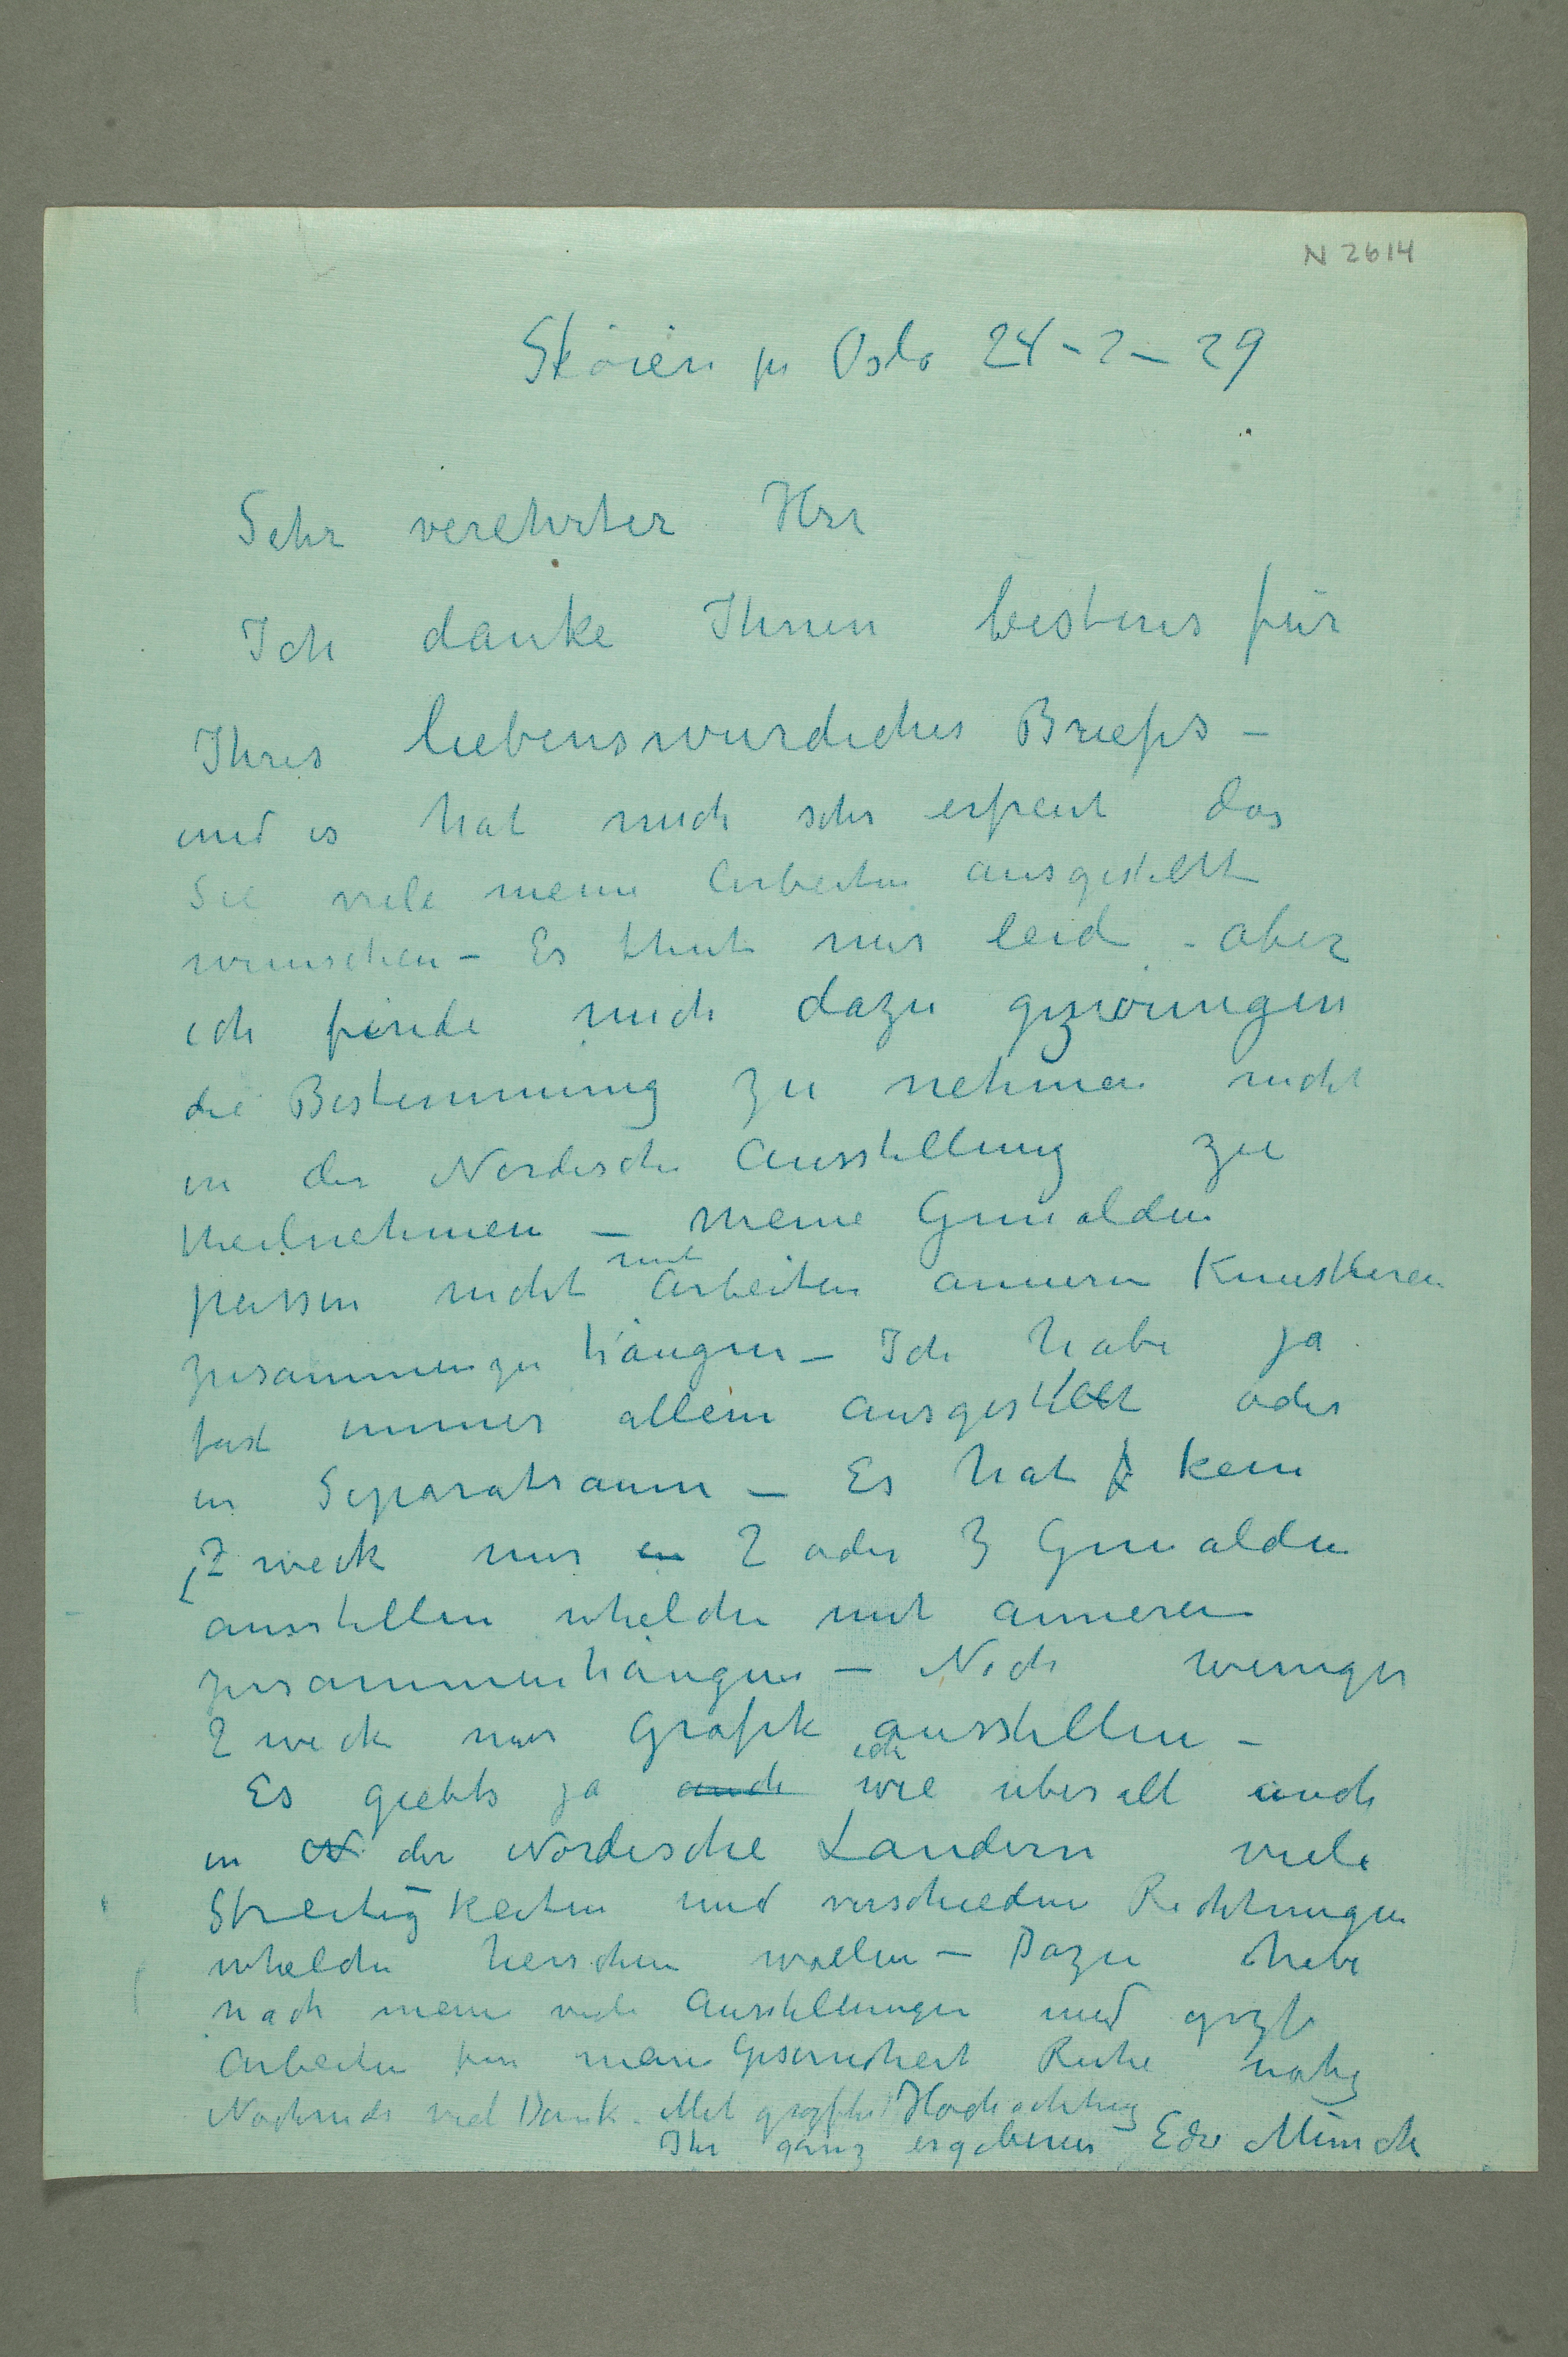 N 2614
Skøien pr Oslo 24-2-29
Sehr verehrter Herr
Ich danke Ihnen bestens für
Ihres liebenswurdiches Briefs –
und es hat mich sehr erfreut das
Sie viele meine Arbeiten ausgestellt
wunschen – Es thut mir leid – aber
ich finde mich dazu gezwungen
die Bestimmung zu nehmen nicht
in der Nordische Ausstellung zu
theilnehmen – Meine Gemalden
passen nicht mit Arbeiten anneren Kunstleren
zusammenzu hängen – Ich habe ja
fast immer allein ausgestellt oder
in Separatraum – Es hat kein
Zweck nur en 2 oder 3 Gemalden
ausstellen whelche mit anneren
zusammenhängen – Noch weniger
Zweck nur Grafik ausstellen –
Es giebts ja auch ich wie uberall auch
in N der Nordische Landern viele
Streitigkeiten und verschiedene Richtungen
whelche herschen wollen – Dazu habe
nach meine viele Ausstellungen und grozse
Arbeiten fur meine Gesundheit Ruhe notig
Nochmals viel Dank – Mit grozster Hochachtung
Ihr ganz ergebener Edv Munch